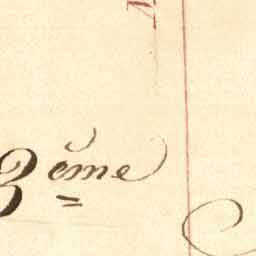 3ème